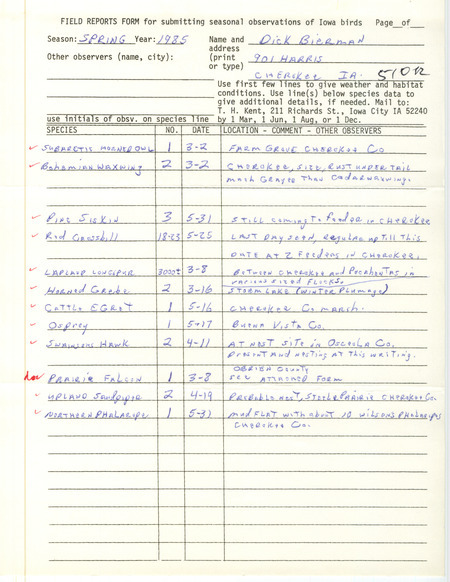 FIELD REPORTS FORM for submitting seasonal observations of Iowa birds Page__of__
Season: SPRING Year: 1985 Name and Dick Bierman
address
Other observers (name, city): (print 901 HARRIS
or type)
CHEROKEE IA. 51012
Use first few lines to give weather and habitat
conditions. Use line(s) below species data to
give additional details, if needed. Mail to:
T. H. Kent, 211 Richards St., Iowa City IA 52240
use initials of obsv. on species line by 1 Mar, 1 Jun, 1 Aug, or 1 Dec.
SPECIES NO. DATE LOCATION - COMMENT - OTHER OBSERVERS
SUBARCTIC HORNED OWL 1 3-2 FARM GROVE CHEROKEE CO
Bohemian WAXWING 2 3-2 CHEROKEE, SIZE, RUST UNDER TAIL
much GRAYER Than CEDAR WAXWING.
Pine Siskin 3 5-31 STILL coming To Feeder in CHEROKEE
Red Crossbill 18-23 5-25 LAST DAY SEEN, regular up Till This
DATE AT 2 Feeders in CHEROKEE.
LAPLAND LONGSPUR 3000± 3-8 Between CHEROKEE and Pocahontas in
various sized FLOCKS
Horned Grebe 2 3-16 STORM LAKE (WINTER Plumage)
Cattle EGRET 1 5-16 CHEROKEE Co marsh.
Osprey 1 5-17 Buena Vista Co.
Swainsons Hawk 2 4-11 AT nest Site in Osceola Co.
Present And nesting AT This writing.
OBRIEN COUNTY
PRAIRIE FALCON 1 3-8 SEE ATTACHED Form
UPLAND Sandpiper 2 4-19 Probable nest, Steele Prairie CHEROKEE Co.
NORTHERN PHALAROPE 1 5-31 mud FLAT with about 10 WILSONS PHALAROPES
CHEROKEE Co.